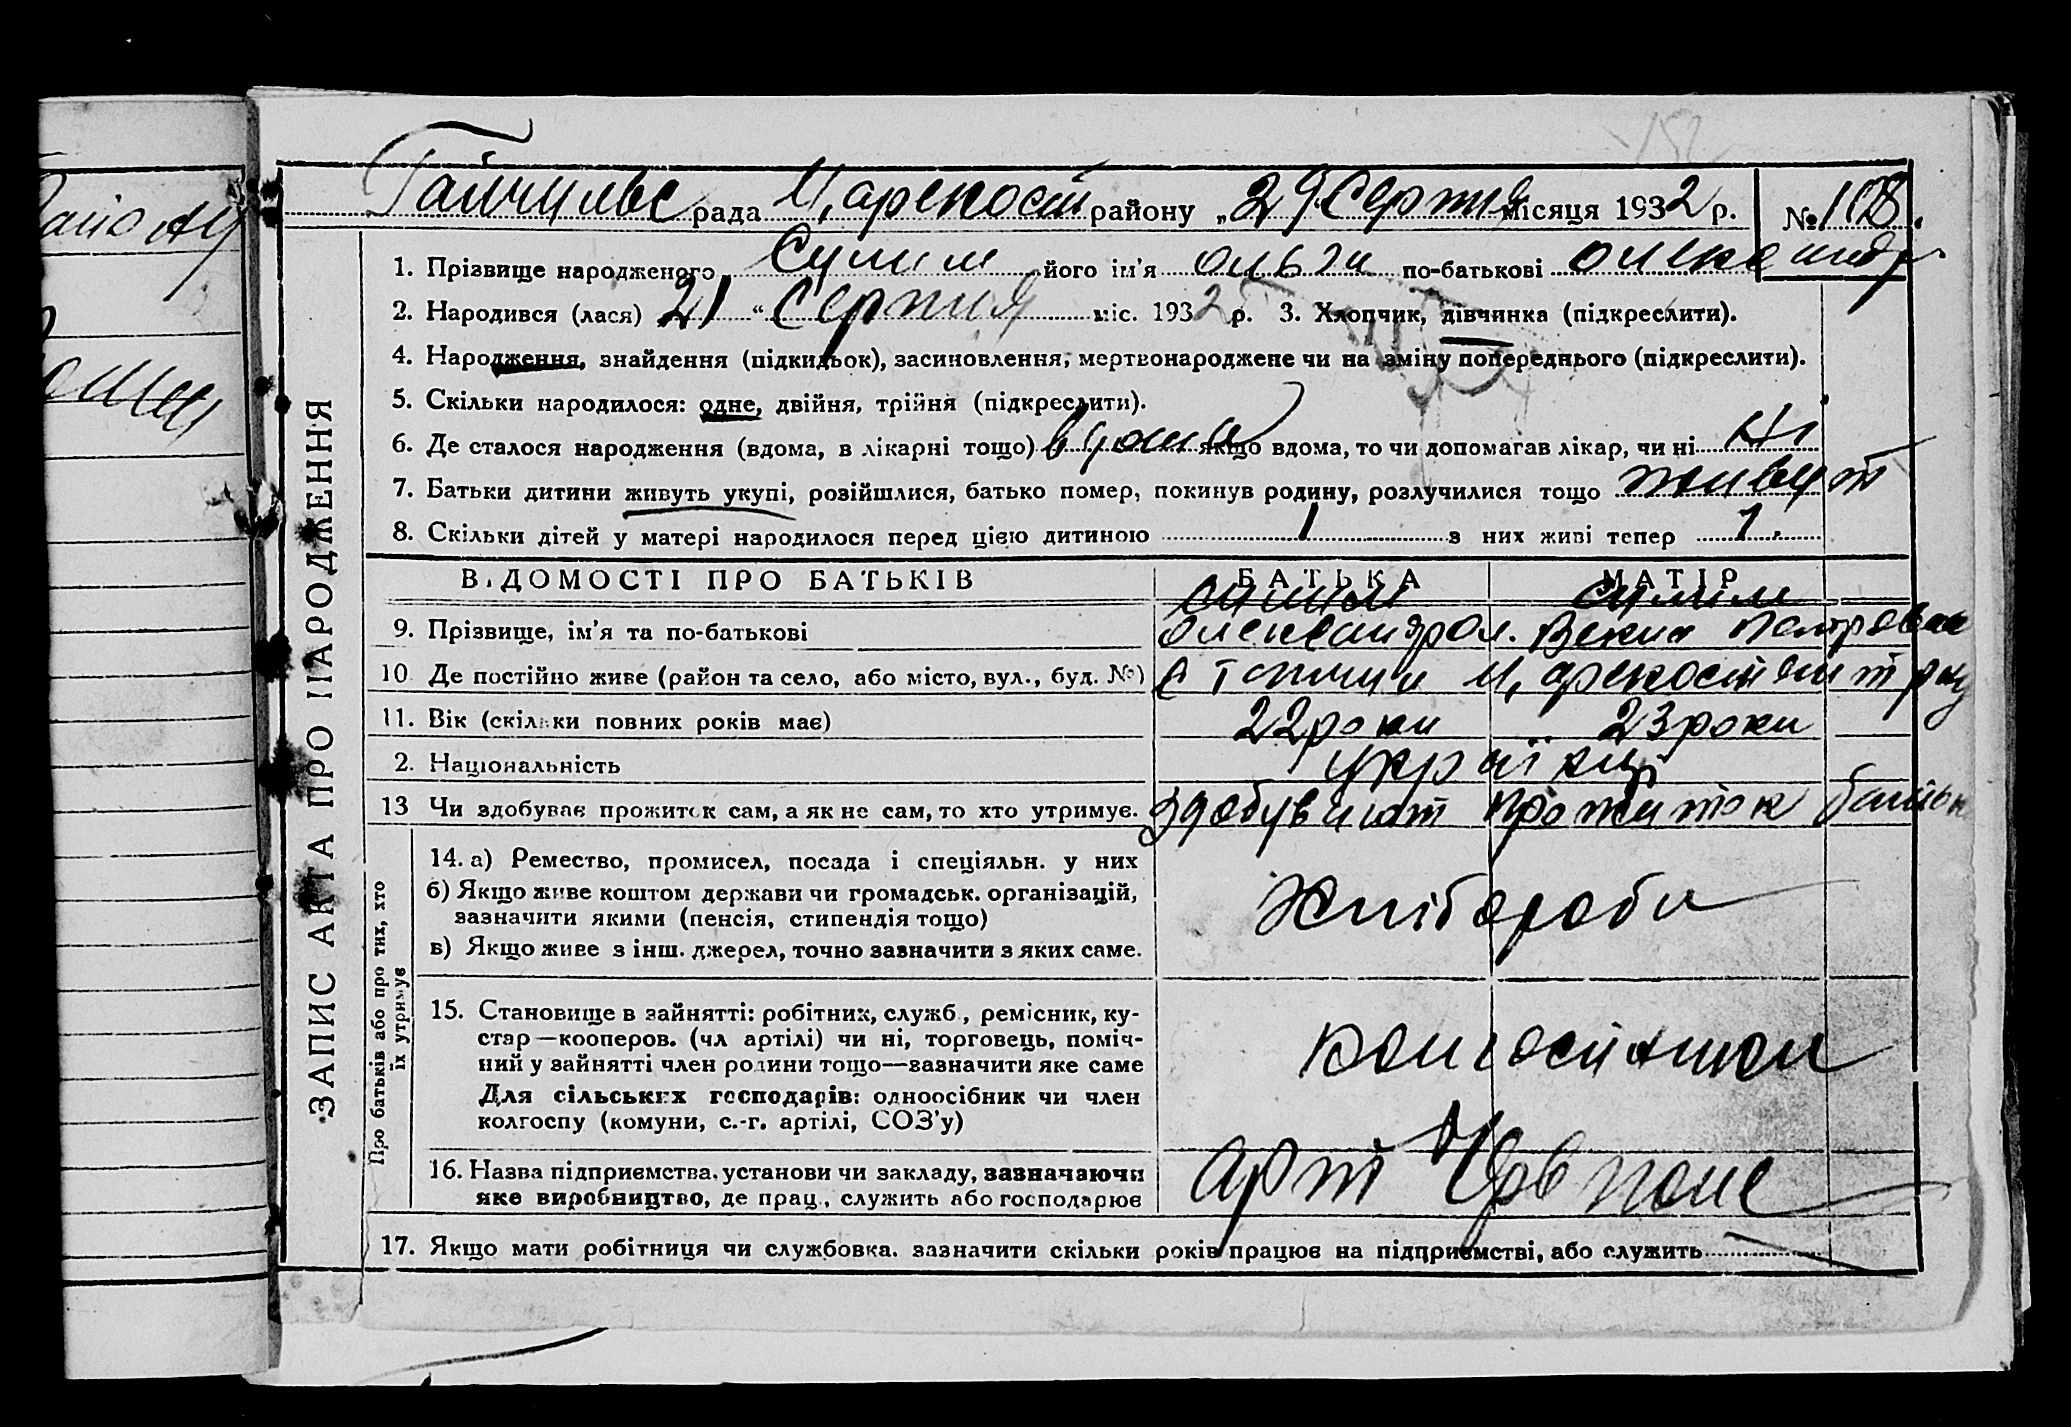 рада району „29 Серпня місяця 1932 р. № 108.
1. Прізвище народженого Сулим його ім'я Ольга по-батькові Олександр
2. Народився (лася) 21 “ Серпня міс. 1932 р. 3. Хлопчик, дівчинка (підкреслити).
4. Народження, знайдення (підкидьок), засиновлення, мертвонароджене чи на зміну попереднього (підкреслити).
5. Скільки народилося: одне, двійня, трійня (підкреслити).
6. Де сталося народження (вдома, в лікарні тощо) вдома якщо вдома, то чи допомагав лікар, чи ні Ні
7. Батьки дитини живуть укупі, розійшлися, батько помер, покинув родину, розлучилися тощо живут
8. Скільки дітей у матері народилося перед цією дитиною 1 з них живі тепер 1.
ЗАПИС АКТА ПРО НАРОДЖЕННЯ
ВІДОМОСТІ ПРО БАТЬКІВ БАТЬКА МАТІР
Сулим Сулим
9. Прізвище, ім'я та по-батькові Олександр Ол. Петровна
10. Де постійно живе (район та село, або місто, вул., буд. №)
11. Вік (скільки повних років має) 22 роки 23 роки
2. Національність українці
13 Чи здобуває прожиток сам, а як не сам, то хто утримує. здобувают прожиток
Про батьків або про тих, хто їх утримує
14. а) Ремество, промисел, посада і спеціяльн. у них
б) Якщо живе коштом держави чи громадськ. організацій,
зазначити якими (пенсія, стипендія тощо) Хлібороби
в) Якщо живе з інш. джерел, точно зазначити з яких саме.
15. Становище в зайнятті: робітник, служб., ремісник, ку-
стар—кооперов. (чл артілі) чи ні, торговець, поміч-
ний у зайнятті член родини тощо—зазначити яке саме
Для сільських господарів: одноосібник чи член
колгоспу (комуни, с.-г. артілі, СОЗ'у)
16. Назва підприємства, установи чи закладу, зазначаючи арт Чрв поле
яке виробництво, де прац., служить або господарює
17. Якщо мати робітниця чи службовка, зазначити скільки років працює на підприємстві, або служить